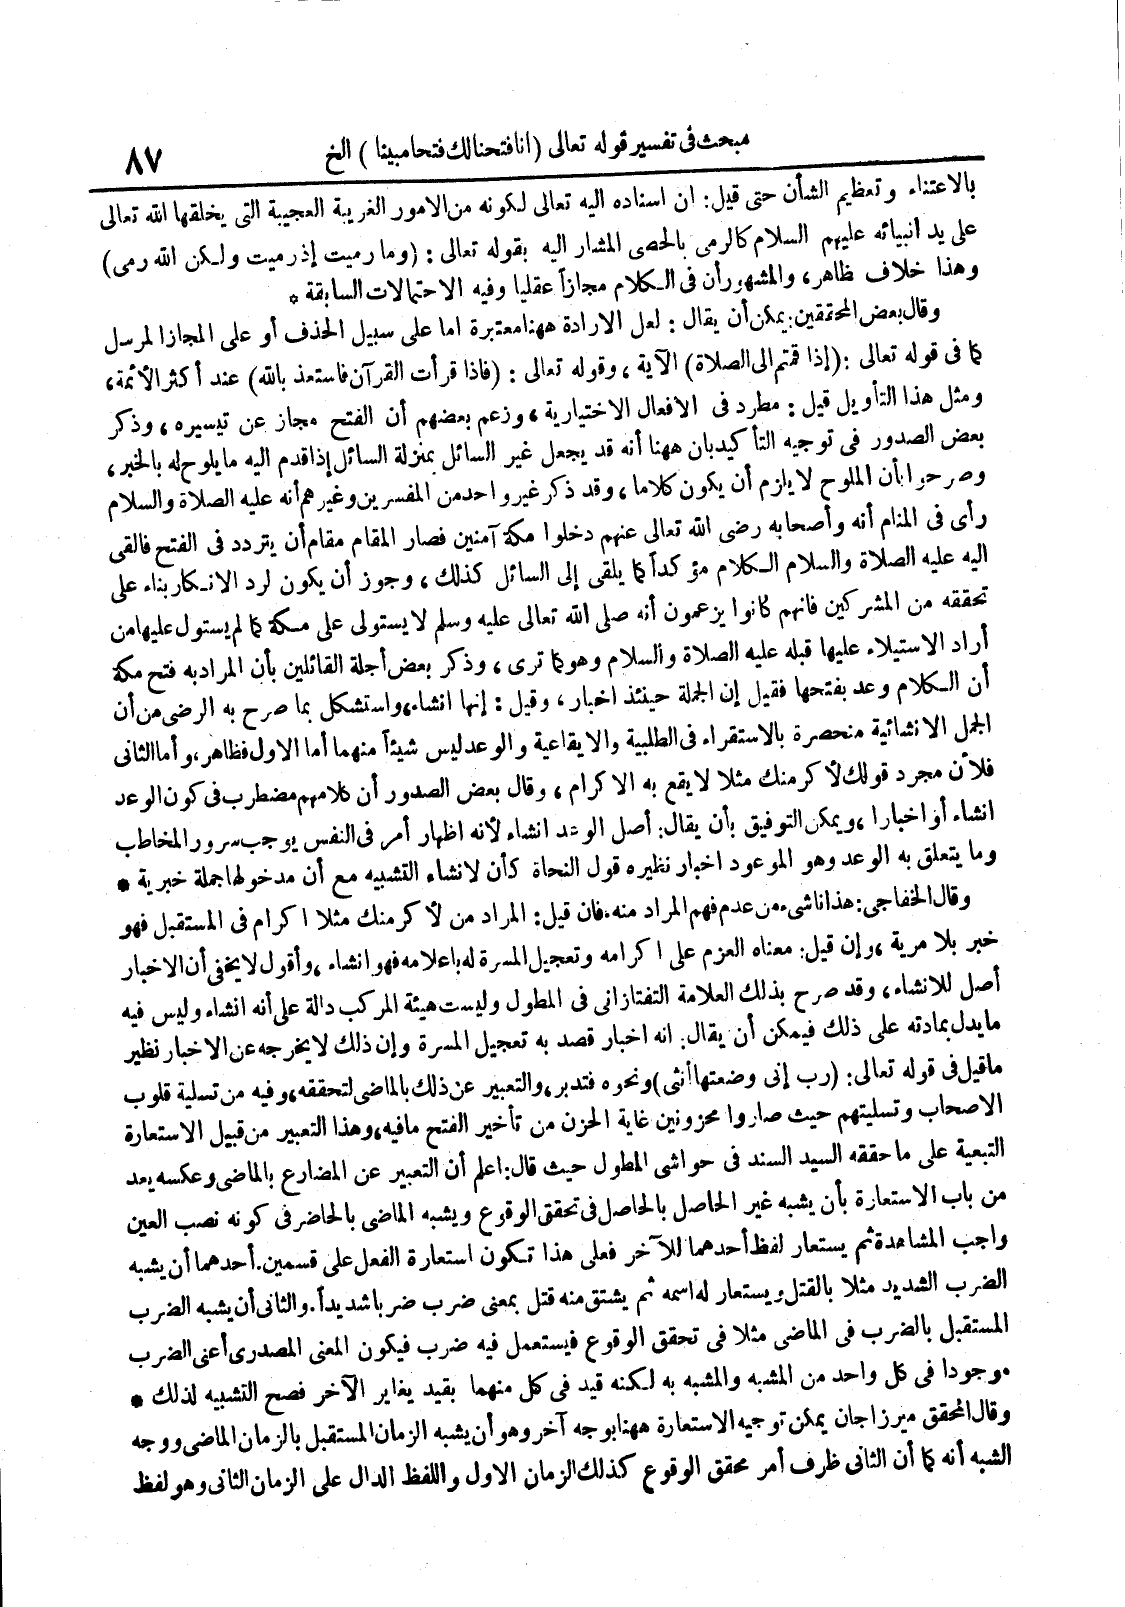 مبحث فى تفسير قوله تعالى (انا فتحنا لك فتحا مبينا ) الخ ٨٧
بالاعتناء وتعظيم الشأن حتى قيل: ان اسناده اليه تعالى لكونه من الامور الغريبة العجيبة التى يخلقها الله تعالى
على يد انبيائه عليهم السلام كالرمى بالحصى المشار اليه بقوله تعالى : (وما رميت إذ رميت ولكن الله رمى)
وهذا خلاف ظاهر، والمشهور أن فى الكلام مجازاً عقليا وفيه الاحتمالات السابقة *
وقال بعض المحققين: يمكن أن يقال : لعل الارادة ههنا معتبرة اما على سبيل الحذف أو على المجاز المرسل
كما فى قوله تعالى :(إذا قمتم الى الصلاة) الآية ، وقوله تعالى : (فاذا قرأت القرآن فاستعذ بالله) عند أكثر الأئمة،
ومثل هذا التأويل قيل : مطرد فى الافعال الاختيارية ، وزعم بعضهم أن الفتح مجاز عن تيسيره ، وذكر
بعض الصدور فى توجيه التأكيد بان ههنا أنه قد يجعل غير السائل بمنزلة السائل إذا قدم اليه ما يلوح له بالخبر ،
وصرحوا بأن الملوح لا يلزم أن يكون كلاما ، وقد ذكر غير واحد من المفسرين وغيرهم أنه عليه الصلاة والسلام
رأى فى المنام أنه وأصحابه رضى الله تعالى عنهم دخلوا مكة آمنين فصار المقام مقام أن يتردد فى الفتح فالقى
اليه عليه الصلاة والسلام الكلام مؤكداً كما يلقى إلى السائل كذلك ، وجوز أن يكون لرد الانكار بناء على
تحققه من المشركين فانهم كانوا يزعمون أنه صلى الله تعالى عليه وسلم لا يستولى على مكة كما لم يستول عليها من
أراد الاستيلاء عليها قبله عليه الصلاة والسلام وهو كما ترى ، وذكر بعض أجلة القائلين بأن المراد به فتح مكة
أن الكلام وعد بفتحها فقيل إن الجملة حينئذ اخبار ، وقيل : إنها انشاء، واستشكل بما صرح به الرضى من أن
الجمل الانشائية منحصرة بالاستقراء فى الطلبية والايقاعية والوعد ليس شيئاً منهما أما الاول فظاهر، وأما الثانى
فلأن مجرد قولك لأكرمنك مثلا لا يقع به الاكرام ، وقال بعض الصدور أن كلامهم مضطرب فى كون الوعد
انشاء أو اخبارا ، ويمكن التوفيق بأن يقال: أصل الوعد انشاء لأنه اظهار أمر فى النفس يوجب سرور المخاطب
وما يتعلق به الوعد وهو الموعود اخبار نظيره قول النحاة كأن لانشاء التشبيه مع أن مدخولها جملة خبرية *
وقال الخفاجى: هذا ناشىء من عدم فهم المراد منه. فان قيل: المراد من لأكرمنك مثلا اكرام فى المستقبل فهو
خبر بلا مرية ، وإن قيل: معناه العزم على اكرامه وتعجيل المسرة له باعلامه فهو انشاء ، وأقول لا يخفى أن الاخبار
أصل للانشاء ، وقد صرح بذلك العلامة التفتازانى فى المطول وليست هيئة المركب دالة على أنه انشاء وليس فيه
ما يدل بمادته على ذلك فيمكن أن يقال: انه اخبار قصد به تعجيل المسرة وإن ذلك لا يخرجه عن الاخبار نظير
ما قيل فى قوله تعالى: (رب إنى وضعتها أنثى) ونحوه فتدبر، والتعبير عن ذلك بالماضى لتحققه، وفيه من تسلية قلوب
الاصحاب وتسليتهم حيث صاروا محزونين غاية الحزن من تأخير الفتح مافيه، وهذا التعبير من قبيل الاستعارة
التبعية على ما حققه السيد السند فى حواشى المطول حيث قال: اعلم أن التعبير عن المضارع بالماضى وعكسه يعد
من باب الاستعارة بأن يشبه غير الحاصل بالحاصل فى تحقق الوقوع ويشبه الماضى بالحاضر فى كونه نصب العين
واجب المشاهدة ثم يستعار لفظ أحدهما للآخر فعلى هذا تكون استعارة الفعل على قسمين. أحدهما أن يشبه
الضرب الشديد مثلا بالقتل ويستعار له اسمه ثم يشتق منه قتل بمعنى ضرب ضربا شديداً. والثانى أن يشبه الضرب
المستقبل بالضرب فى الماضى مثلا فى تحقق الوقوع فيستعمل فيه ضرب فيكون المعنى المصدرى أعنى الضرب
موجودا فى كل واحد من المشبه والمشبه به لكنه قيد فى كل منهما بقيد يغاير الآخر فصح التشبيه لذلك *
وقال المحقق ميرزاجان يمكن توجيه الاستعارة ههنا بوجه آخر وهو أن يشبه الزمان المستقبل بالزمان الماضى ووجه
الشبه أنه كما أن الثانى ظرف أمر محقق الوقوع كذلك الزمان الاول واللفظ الدال على الزمان الثانى وهو لفظ